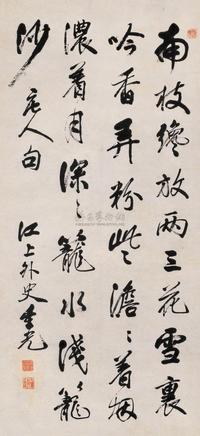 南枝纔放两三花雪裏
吟香弄粉些澹〻着烟
濃着月深〻籠水淺籠
沙 人句
江上外史重光